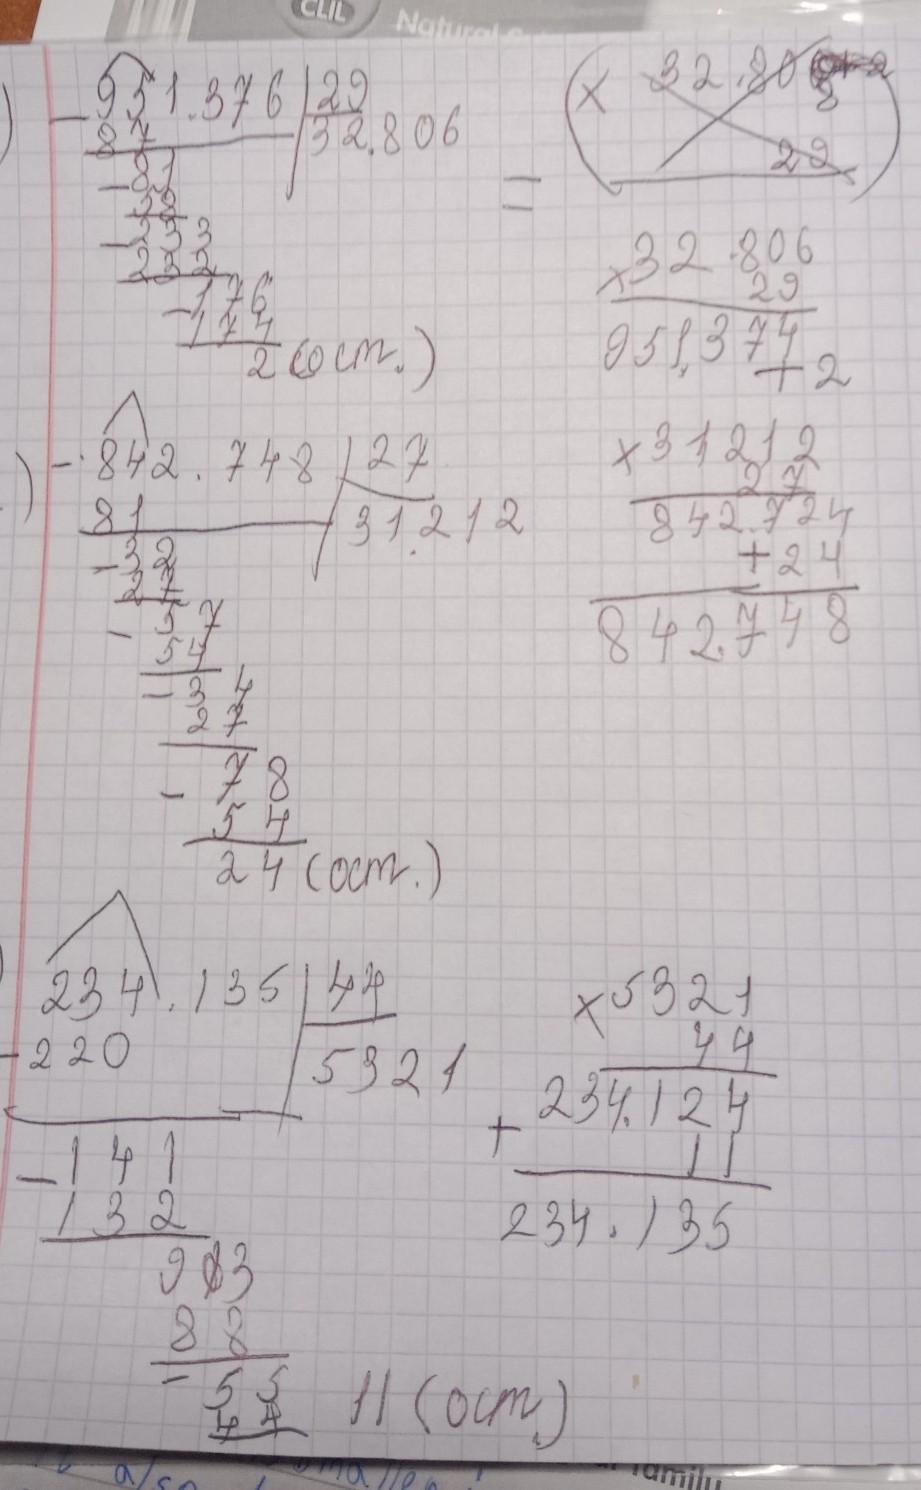 CLIL
Natural
951.376 | 29
- 87
32.806
- 81
58
- 233
232
- 176
174
2 (ост.)
× 32.80
29
=
× 32.806
29
951.374
+ 2
- 842.748 | 27
81
31.212
- 32
27
- 57
54
- 34
27
- 78
54
24 (ост.)
× 31212
27
842.724
+ 24
842.748
234.135 | 44
- 220
5321
- 141
132
93
88
- 55
44
11 (ост.)
× 5321
44
234.124
+ 11
234.135
family